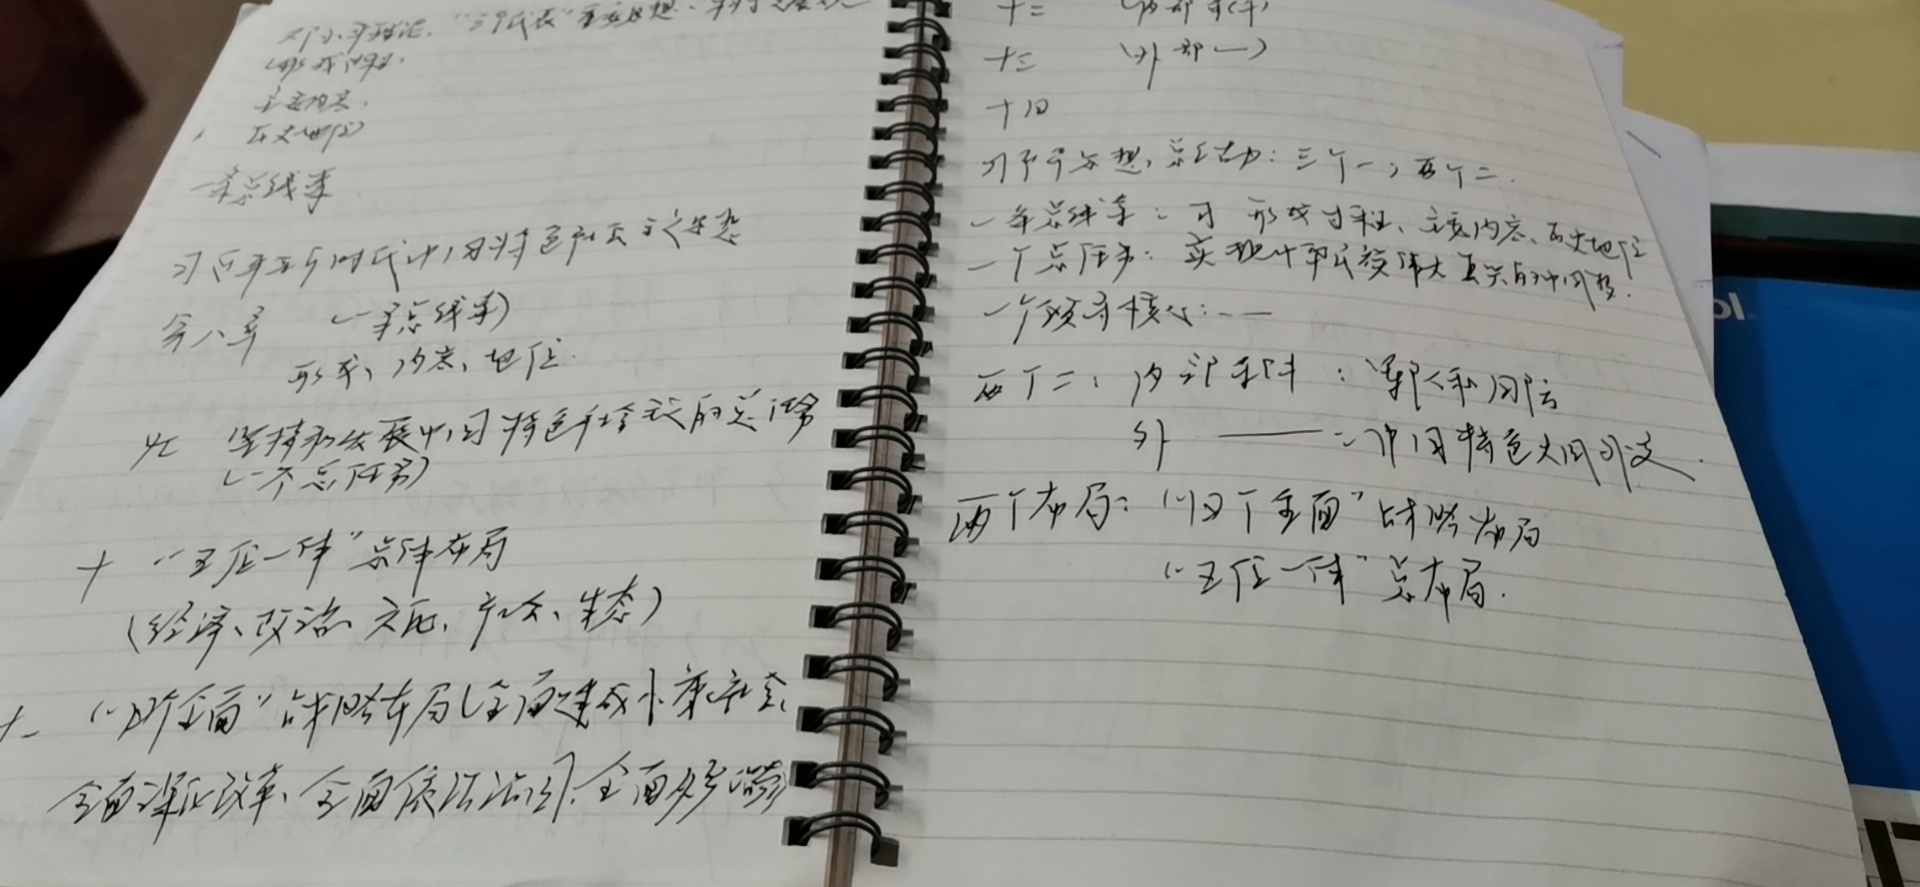 邓小平理论、"三个代表"重要思想、科学发展观
(形成过程、
主要内容、
历史地位)
一条总线索
习近平新时代中国特色社会主义思想
第八章 (一条总线索)
形成、内容、地位.
九 坚持和发展中国特色社会主义的总任务
(一个总任务)
十 "五位一体"总体布局
(经济、政治、文化、社会、生态)
十一 "四个全面"战略布局(全面建成小康社会、
全面深化改革、全面依法治国、全面从严治党)
十二 (内部条件)
十三 (外部一)
十四
习近平思想,总: 三个一,两个二.
一条总线索: 习 形成过程、主要内容、历史地位
一个总任务: 实现中华民族伟大复兴的中国梦.
一个领导核心: 一一
两个二: 内部条件: 军队和国防
外 ——: 中国特色大国外交.
两个布局: "四个全面"战略布局
"五位一体"总布局.
ol